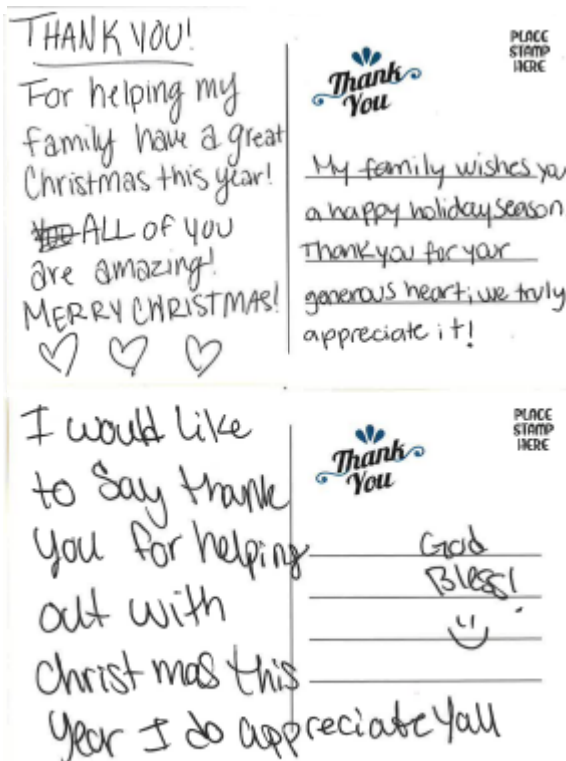 THANK YOU!
For helping my
family have a great
Christmas this year!
ALL OF YOU
are amazing!
MERRY CHRISTMAS!
Thank
You
PLACE
STAMP
HERE
My family wishes you
a happy holiday season
Thank you for your
generous heart; we truly
appreciate it!
I would like
to Say thank
you for helping
out with
christmas this
year I do appreciate Yall
Thank
You
PLACE
STAMP
HERE
God
Bless!